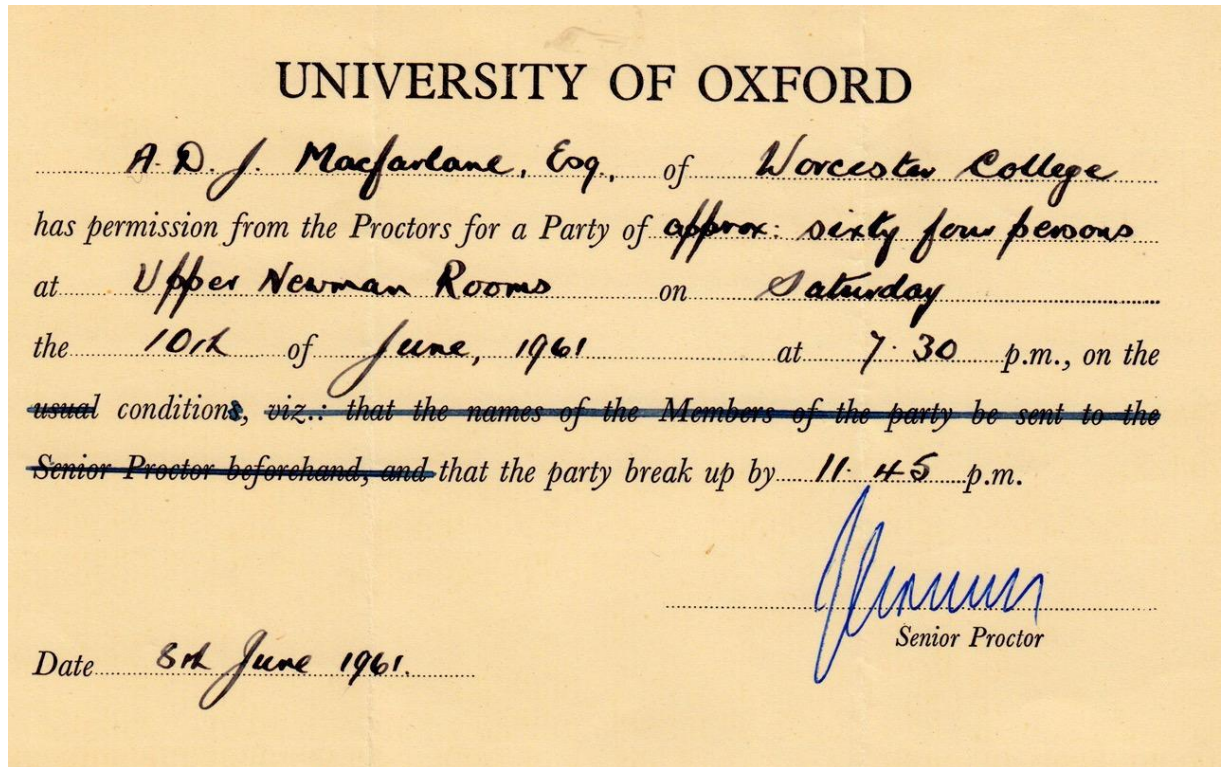 UNIVERSITY OF OXFORD
A. D. J. Macfarlane, Esq., of Worcester College
has permission from the Proctors for a Party of approx: sixty four persons
at Upper Newman Rooms on Saturday
the 10th of June, 1961 at 7.30 p.m., on the
usual conditions, viz.: that the names of the Members of the party be sent to the
Senior Proctor beforehand, and that the party break up by 11.45 p.m.
Senior Proctor
Date 8th June 1961.